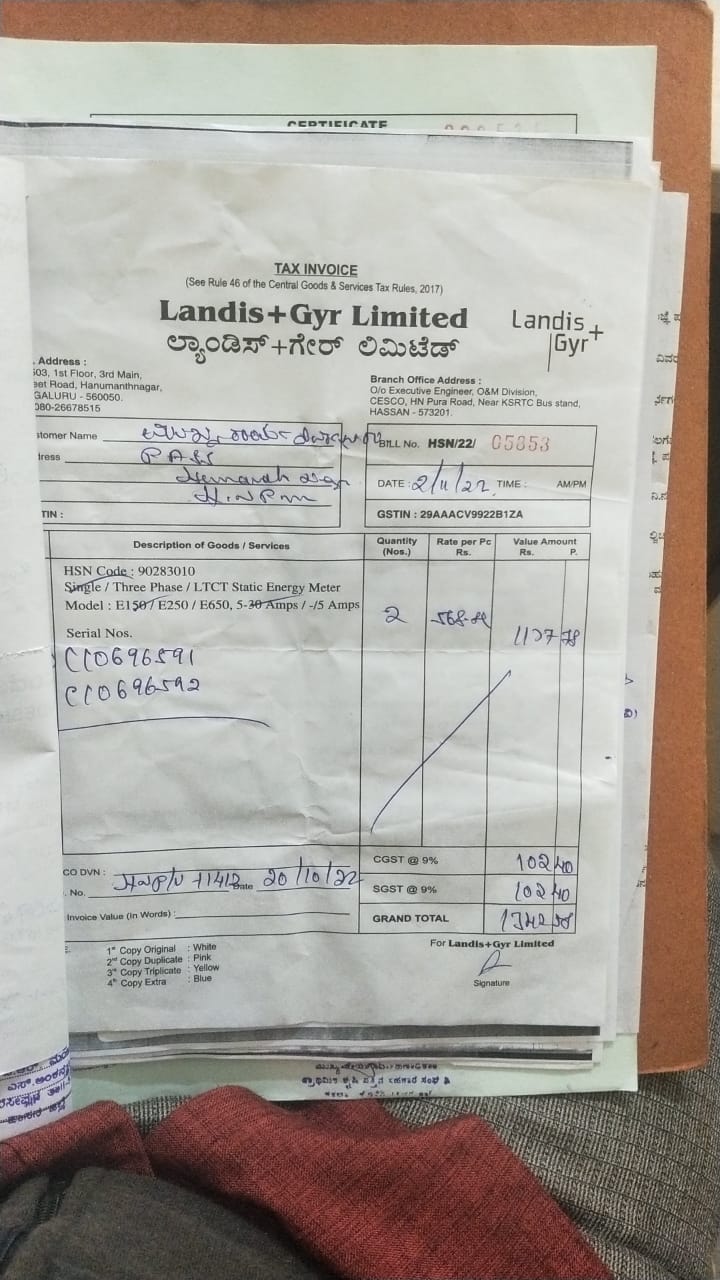 CERTIFICATE
TAX INVOICE
(See Rule 46 of the Central Goods & Services Tax Rules, 2017)
Landis+Gyr Limited
ಲ್ಯಾಂಡಿಸ್+ಗೇರ್ ಲಿಮಿಟೆಡ್
Landis+
Gyr
. Address :
503, 1st Floor, 3rd Main,
eet Road, Hanumanthnagar,
GALURU - 560050.
080-26678515
Branch Office Address :
O/o Executive Engineer, O&M Division,
CESCO, HN Pura Road, Near KSRTC Bus stand,
HASSAN - 573201.
stomer Name
BILL No. HSN/22/ 05853
dress
DATE : 2/11/22 TIME : AM/PM
TIN :
GSTIN : 29AAACV9922B1ZA
Description of Goods / Services
Quantity (Nos.)
Rate per Pc Rs.
Value Amount Rs. P.
HSN Code : 90283010
Single / Three Phase / LTCT Static Energy Meter
Model : E150 / E250 / E650, 5-30 Amps / -/5 Amps
2
Serial Nos.
CC0696591
CC0696592
CO DVN :
. No.
Date 20/10/22
CGST @ 9% 102 40
SGST @ 9% 102 40
Invoice Value (In Words) :
GRAND TOTAL
1st Copy Original : White
2nd Copy Duplicate : Pink
3rd Copy Triplicate : Yellow
4th Copy Extra : Blue
For Landis+Gyr Limited
Signature